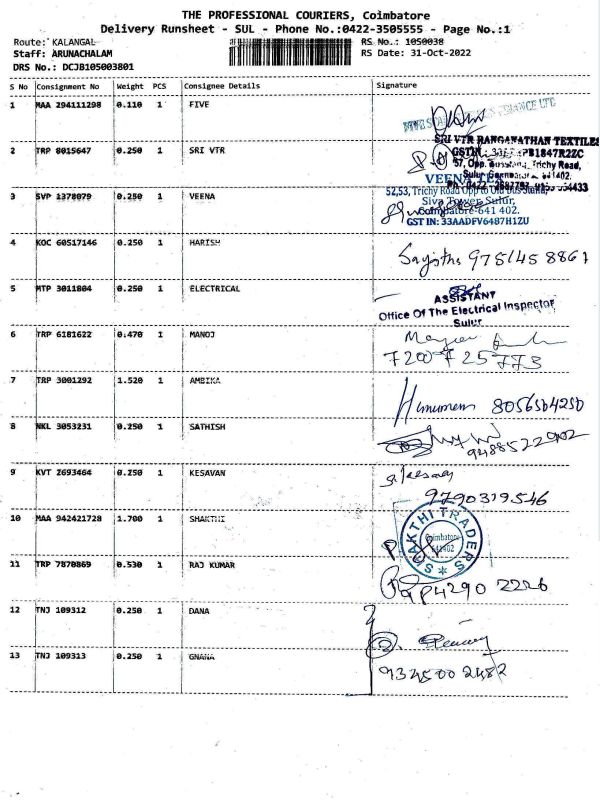 THE PROFESSIONAL COURIERS, Coimbatore
Delivery Runsheet - SUL - Phone No.:0422-3505555 - Page No.:1
Route: KALANGAL RS No.: 1050038
Staff: ARUNACHALAM RS Date: 31-Oct-2022
DRS No.: DCJB105003801
S No Consignment No Weight PCS Consignee Details Signature
1 MAA 294111298 0.110 1 FIVE
SRI VTR RANGANATHAN TEXTILES
2 TRP 8015647 0.250 1 SRI VTR
57, Opp. Trichy Road,
VEENA TEX
3 SVP 1378079 0.250 1 VEENA
52,53, Trichy Road Opp to Old Bus Stand,
Siva Tower, Sulur,
Coimbatore-641 402.
GST IN: 33AADFV6487H1ZU
4 KOC 60517146 0.250 1 HARISH
5 MTP 3011804 0.250 1 ELECTRICAL
ASSISTANT
Office Of The Electrical Inspector
Sulur
6 TRP 6181622 0.470 1 MANOJ
7200725773
7 TRP 3001292 1.520 1 AMBIKA
8056504250
8 NKL 3053231 0.250 1 SATHISH
9488522902
9 KVT 2693464 0.250 1 KESAVAN
9790319546
10 MAA 942421728 1.700 1 SHAKTHI
SHAKTHI TRADERS
Coimbatore
641402
11 TRP 7870869 0.530 1 RAJ KUMAR
12 TNJ 109312 0.250 1 DANA
13 TNJ 109313 0.250 1 GNANA
9345002482